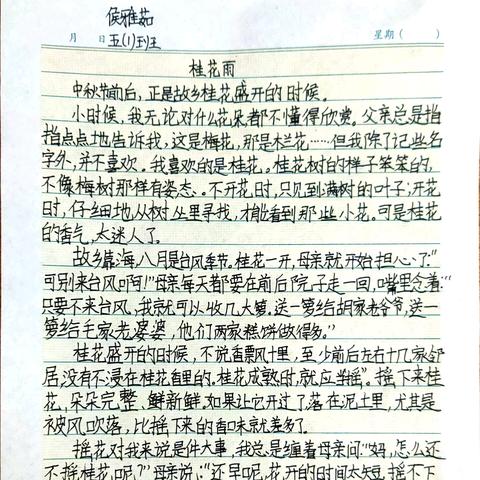 侯雅茹
月 日 五(1)班 星期( )
桂花雨
中秋节前后,正是故乡桂花盛开的时候。
小时候,我无论对什么花朵都不懂得欣赏。父亲总是指
指点点地告诉我,这是梅花,那是木兰花……但我除了记些名
字外,并不喜欢。我喜欢的是桂花。桂花树的样子笨笨的,
不像梅树那样有姿态。不开花时,只见到满树的叶子;开花
时,仔细地从树丛里寻找,才能看到那些小花。可是桂花
的香气,太迷人了。
故乡靠海,八月是台风季节。桂花一开,母亲就开始担心了:“
可别来台风啊!”母亲每天都要在前后院子走一回,嘴里念着:“
只要不来台风,我就可以收几大箩,送一箩给胡家老爷爷,送一
箩给毛家老婆婆,他们两家糕饼做得多。”
桂花盛开的时候,不说香飘十里,至少前后左右十几家邻
居,没有不浸在桂花香里的。桂花成熟时,就应当“摇”。摇下来桂
花,朵朵完整、鲜新鲜。如果让它开过了,落在泥土里,尤其是
被风吹落,比摇下来的香味就差多了。
摇花对我来说是件大事,我总是缠着母亲问:“妈,怎么还
不摇桂花呢?”母亲说:“还早呢,花开的时间太短,摇不下